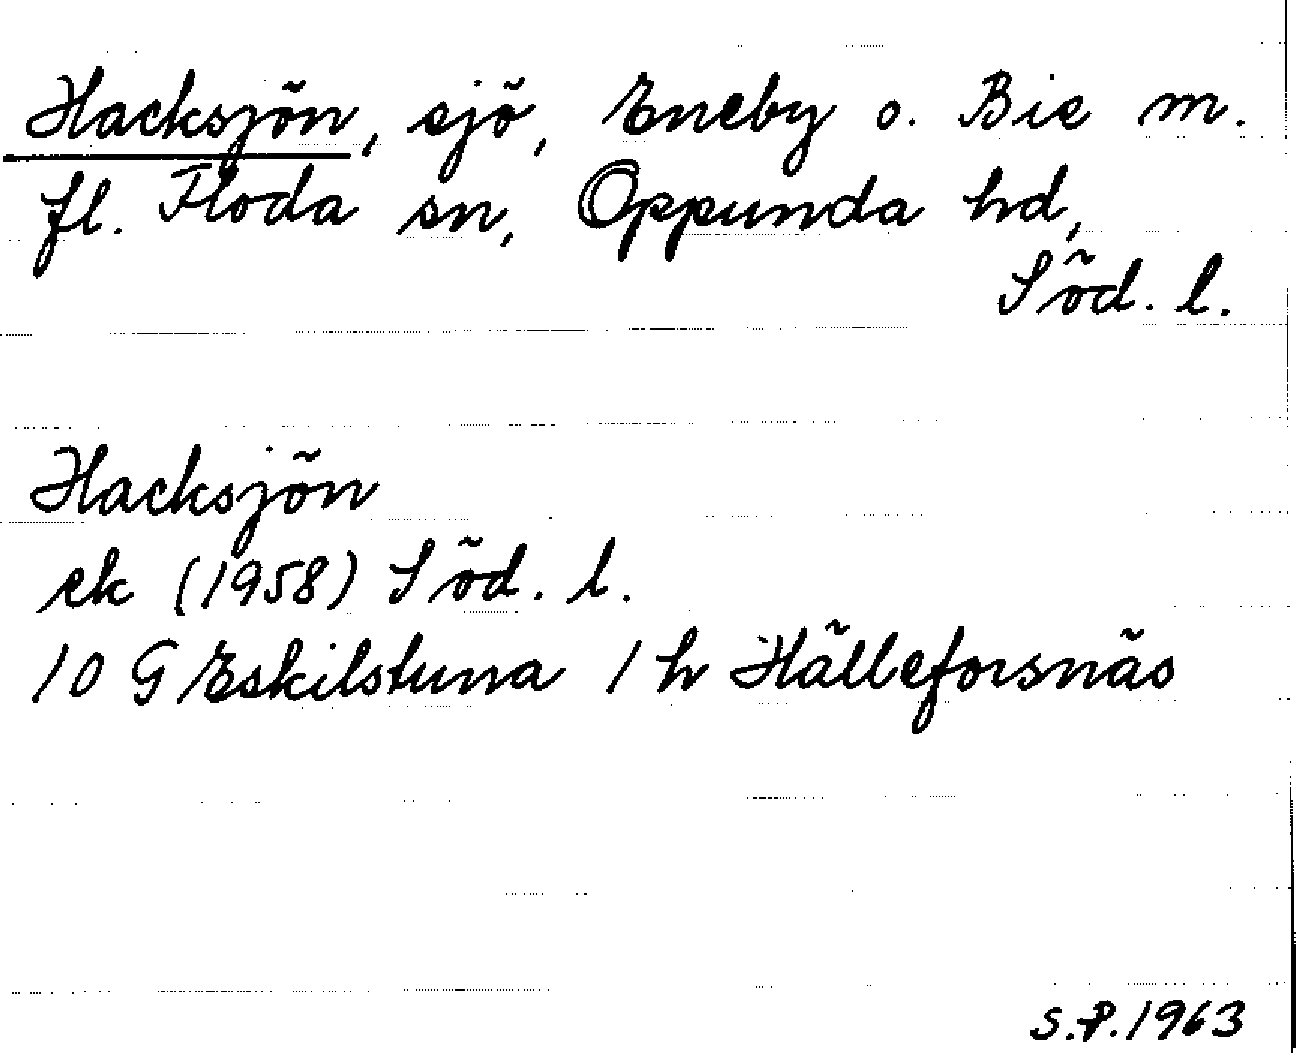 Hacksjön, sjö, Eneby o. Bie m.
fl. Floda sn, Oppunda hd,
Söd. l.
Hacksjön
ek (1958) Söd. l.
10 G Eskilstuna 1 h Hälleforsnäs
S.P. 1963